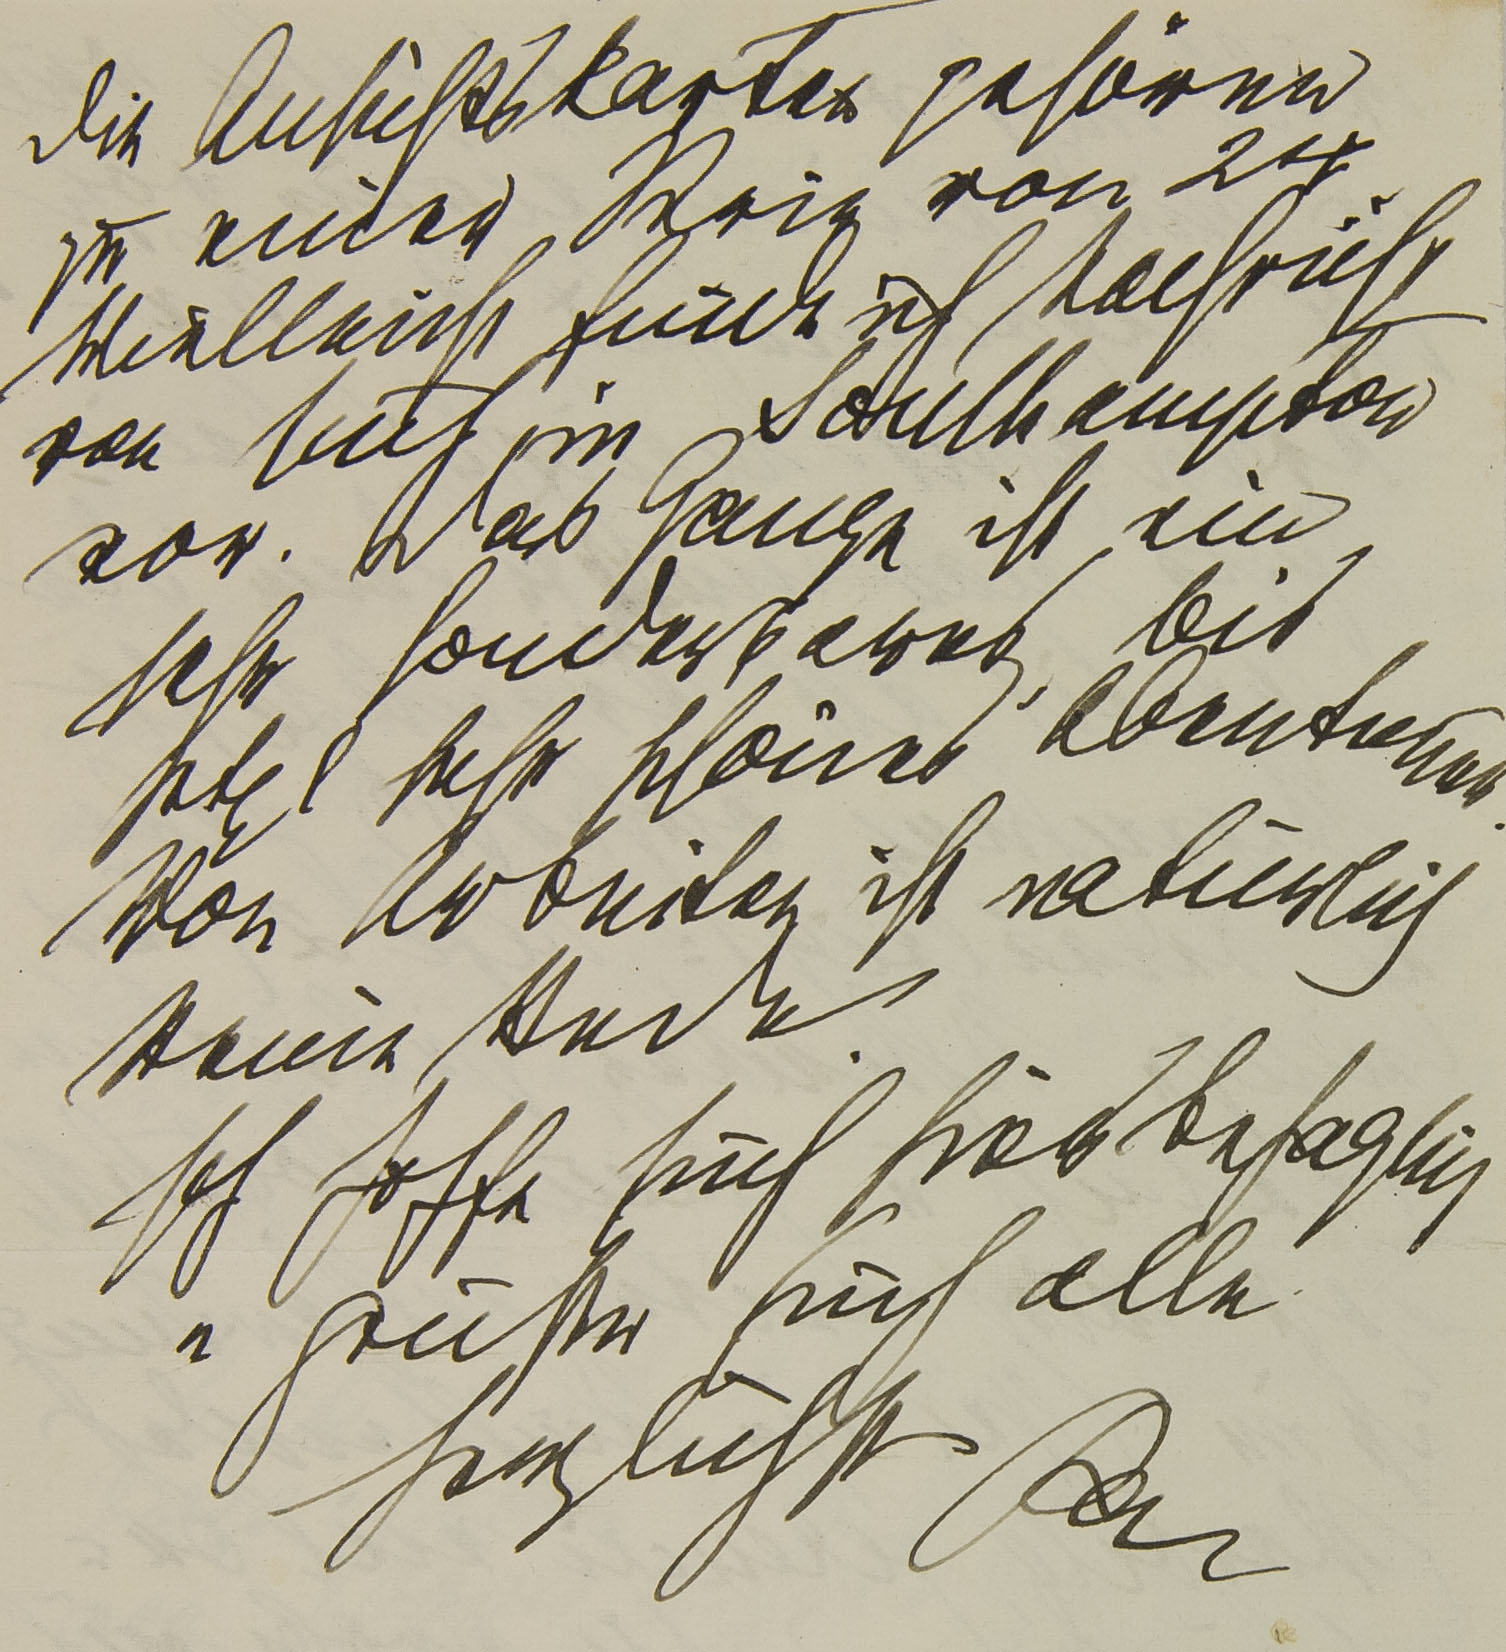 Die Ansichtskarten gehören
zu einer Serie von 24
Vielleicht finde ich Nachricht
von Euch in Southampton
vor. Das Ganze ist ein
sehr sonderbares, bis
jetzt sehr schönes Abenteuer.
Von Arbeiten ist natürlich
keine Rede.
Ich hoffe Euch behaglich
u grüße Euch alle
herzlichst